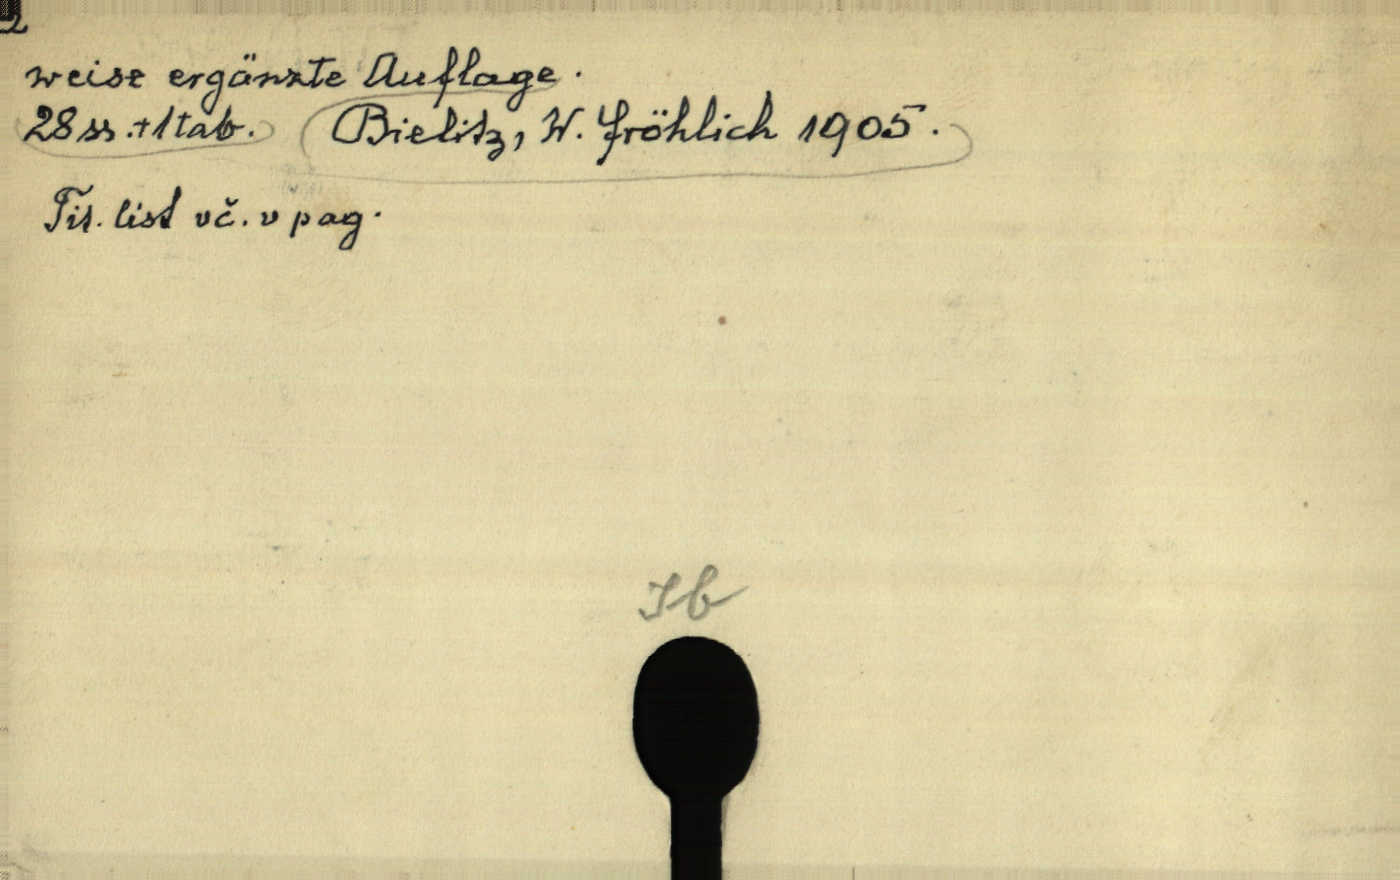 2
weise ergänzte Auflage.
28 ss. + 1 tab. Bielitz, W. Fröhlich 1905.
Tit. list vč. v pag.
Ib